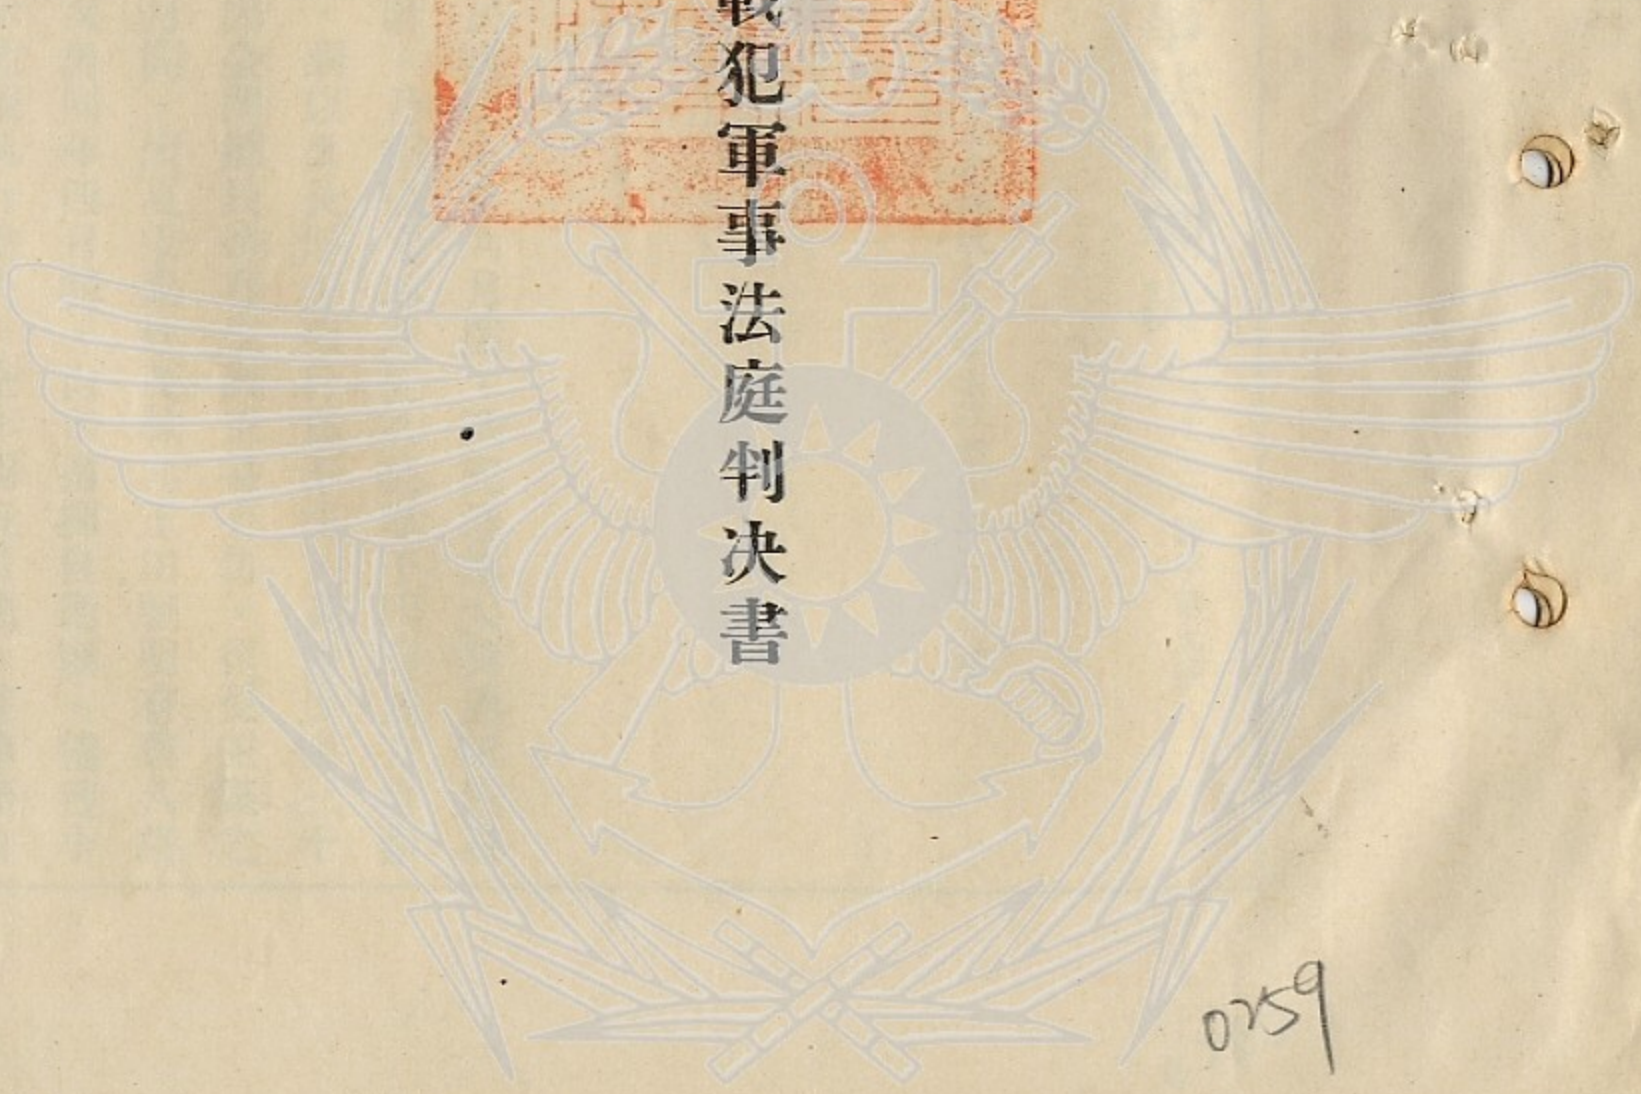 戰犯軍事法庭判决書
0259